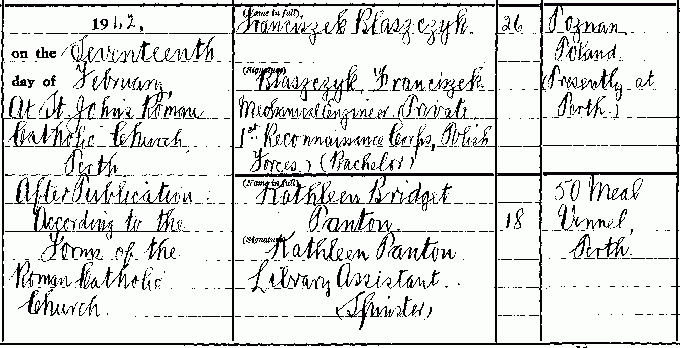 1942,
on the Seventeenth
day of February,
At St. John's Roman
Catholic Church
Perth
After Publication
According to the
Forms of the
Roman Catholic
Church.
(Name in full).
Franciszek Blaszczyk.
(Signature)
Blaszczyk Franciszek
Mechanical Engineer (Private
1st Reconnaissance Corps, Polish
Forces) (Bachelor)
(Name in full)
Kathleen Bridget
Panton.
(Signature)
Kathleen Panton
Library Assistant.
(Spinster)
26
18
Poznan
Poland.
(Presently at
Perth.)
50 Meal
Vennel,
Perth.